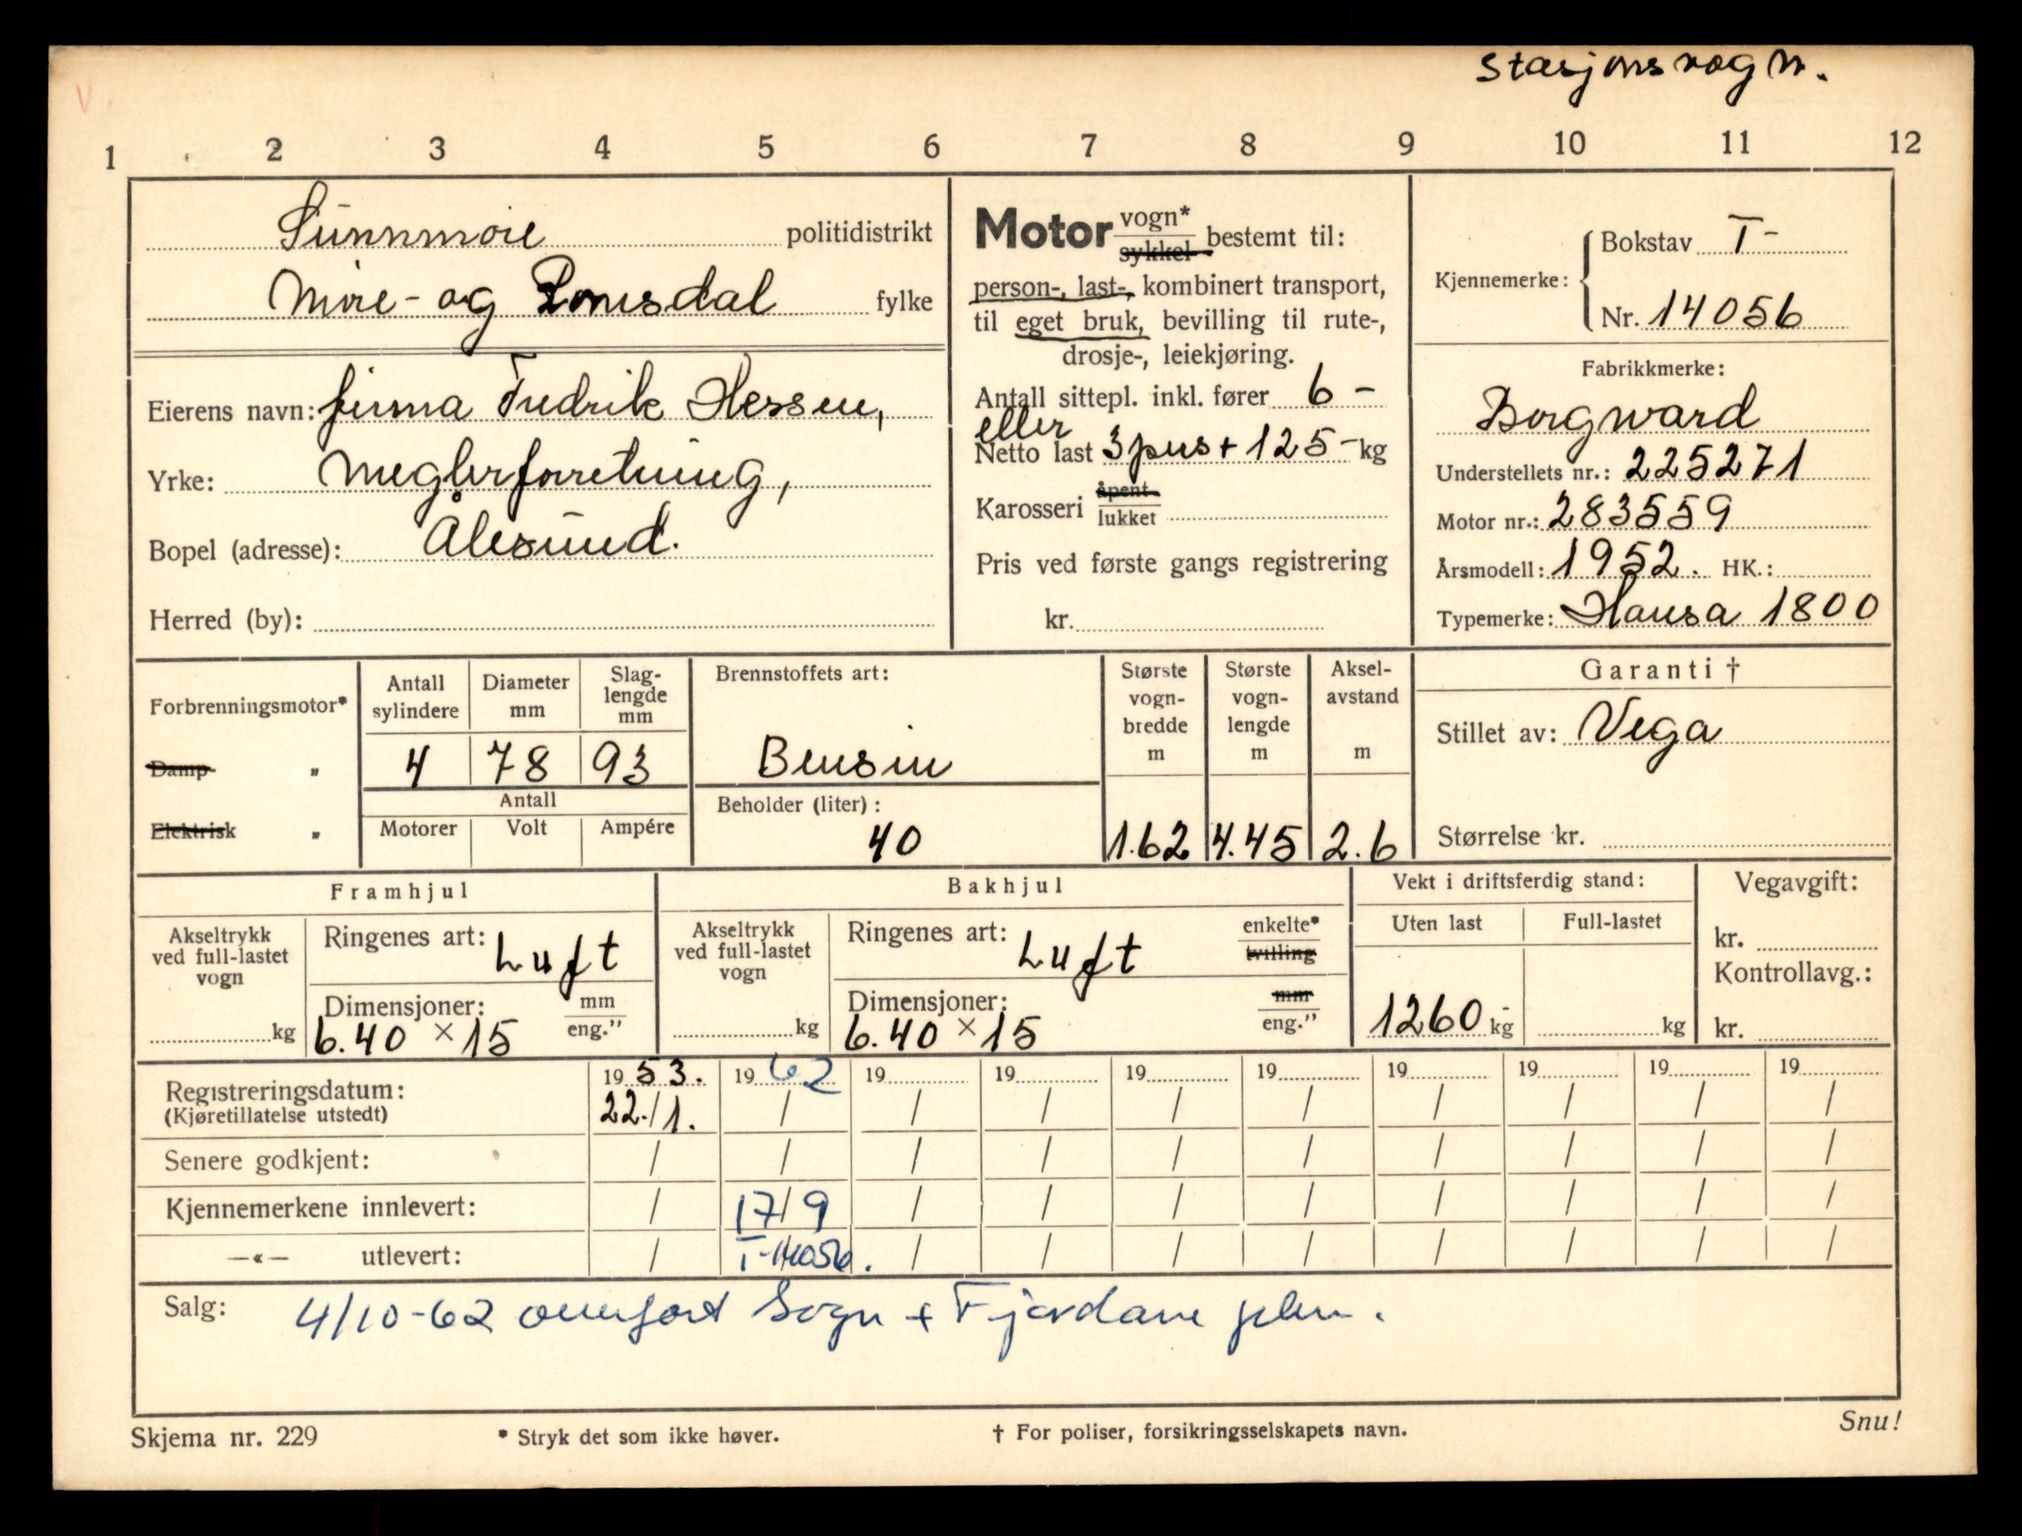 stasjonsvogn.
V
1 2 3 4 5 6 7 8 9 10 11 12
Sunnmøre politidistrikt
Møre- og Romsdal fylke
Eierens navn: firma Fredrik Hessen,
Yrke: meglerforretning,
Bopel (adresse): Ålesund.
Herred (by):
Motor vogn*
sykkel bestemt til:
person-, last-, kombinert transport,
til eget bruk, bevilling til rute-,
drosje-, leiekjøring.
Antall sittepl. inkl. fører 6 -
eller
Netto last 3 pers + 125 - kg
Karosseri åpent
lukket
Pris ved første gangs registrering
kr.
Kjennemerke: Bokstav T-
Nr. 14056
Fabrikkmerke:
Borgward
Understellets nr.: 225271
Motor nr.: 283559
Årsmodell: 1952. HK.:
Typemerke: Hansa 1800
Forbrenningsmotor*
Damp "
Elektrisk "
Antall sylindere Diameter mm Slaglengde mm
4 78 93
Antall
Motorer Volt Ampére
Brennstoffets art:
Bensin
Beholder (liter):
40
Største vognbredde m Største vognlengde m Akselavstand m
1.62 4.45 2.6
Garanti †
Stillet av: Vega
Størrelse kr.
Framhjul
Akseltrykk ved full-lastet vogn
kg
Ringenes art: Luft
Dimensjoner: mm
6.40 × 15 eng."
Bakhjul
Akseltrykk ved full-lastet vogn
kg
Ringenes art: Luft enkelte*
tvilling
Dimensjoner: mm
6.40 × 15 eng."
Vekt i driftsferdig stand:
Uten last Full-lastet
1260 - kg kg
Vegavgift:
kr.
Kontrollavg.:
kr.
19 53. 19 62 19 19 19 19 19 19 19 19
Registreringsdatum: 22./1. / / / / / / / / /
(Kjøretillatelse utstedt)
Senere godkjent: / / / / / / / / / /
Kjennemerkene innlevert: / 17/9 / / / / / / / /
—«— utlevert: / T-14056. / / / / / / / /
Salg: 4/10-62 overført Sogn + Fjordane
Skjema nr. 229 * Stryk det som ikke høver. † For poliser, forsikringsselskapets navn. Snu!